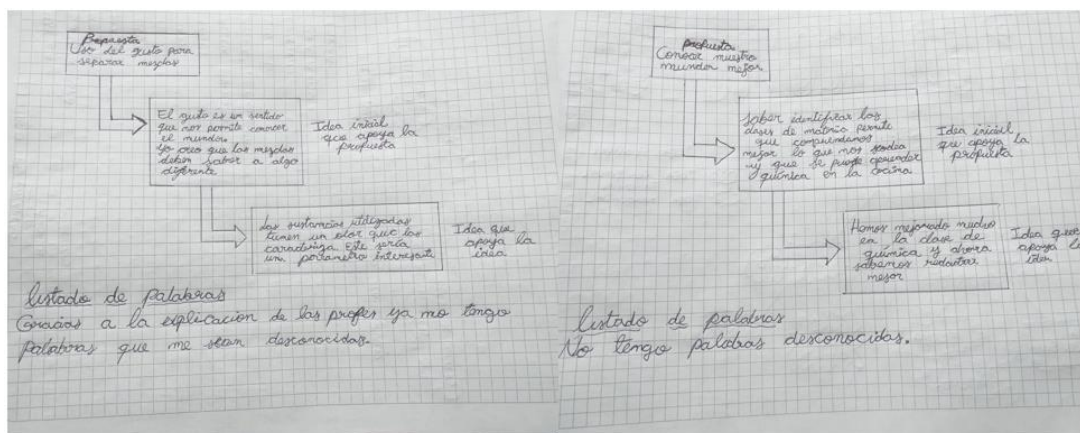 Propuesta
Uso del gusto para
separar mezclas
El gusto es un sentido
que nos permite conocer
el mundo.
Yo creo que las mezclas
deben saber a algo
diferente
Idea inicial
que apoya la
propuesta
Las sustancias utilizadas
tienen un olor que las
caracteriza. Este sería
un parámetro interesante
Idea que
apoya la
idea
listado de palabras
Gracias a la explicacion de las profes ya no tengo
palabras que me sean desconocidas.
Propuesta
Conocer nuestro
mundo mejor
Saber identificar las
clases de materia permite
que comprendamos
mejor lo que nos rodea
y que se puede aprender
química en la cocina
Idea inicial
que apoya la
propuesta
Hemos mejorado mucho
en la clase de
química y ahora
sabemos redactar
mejor
Idea que
apoya la
idea
Listado de palabras
No tengo palabras desconocidas.